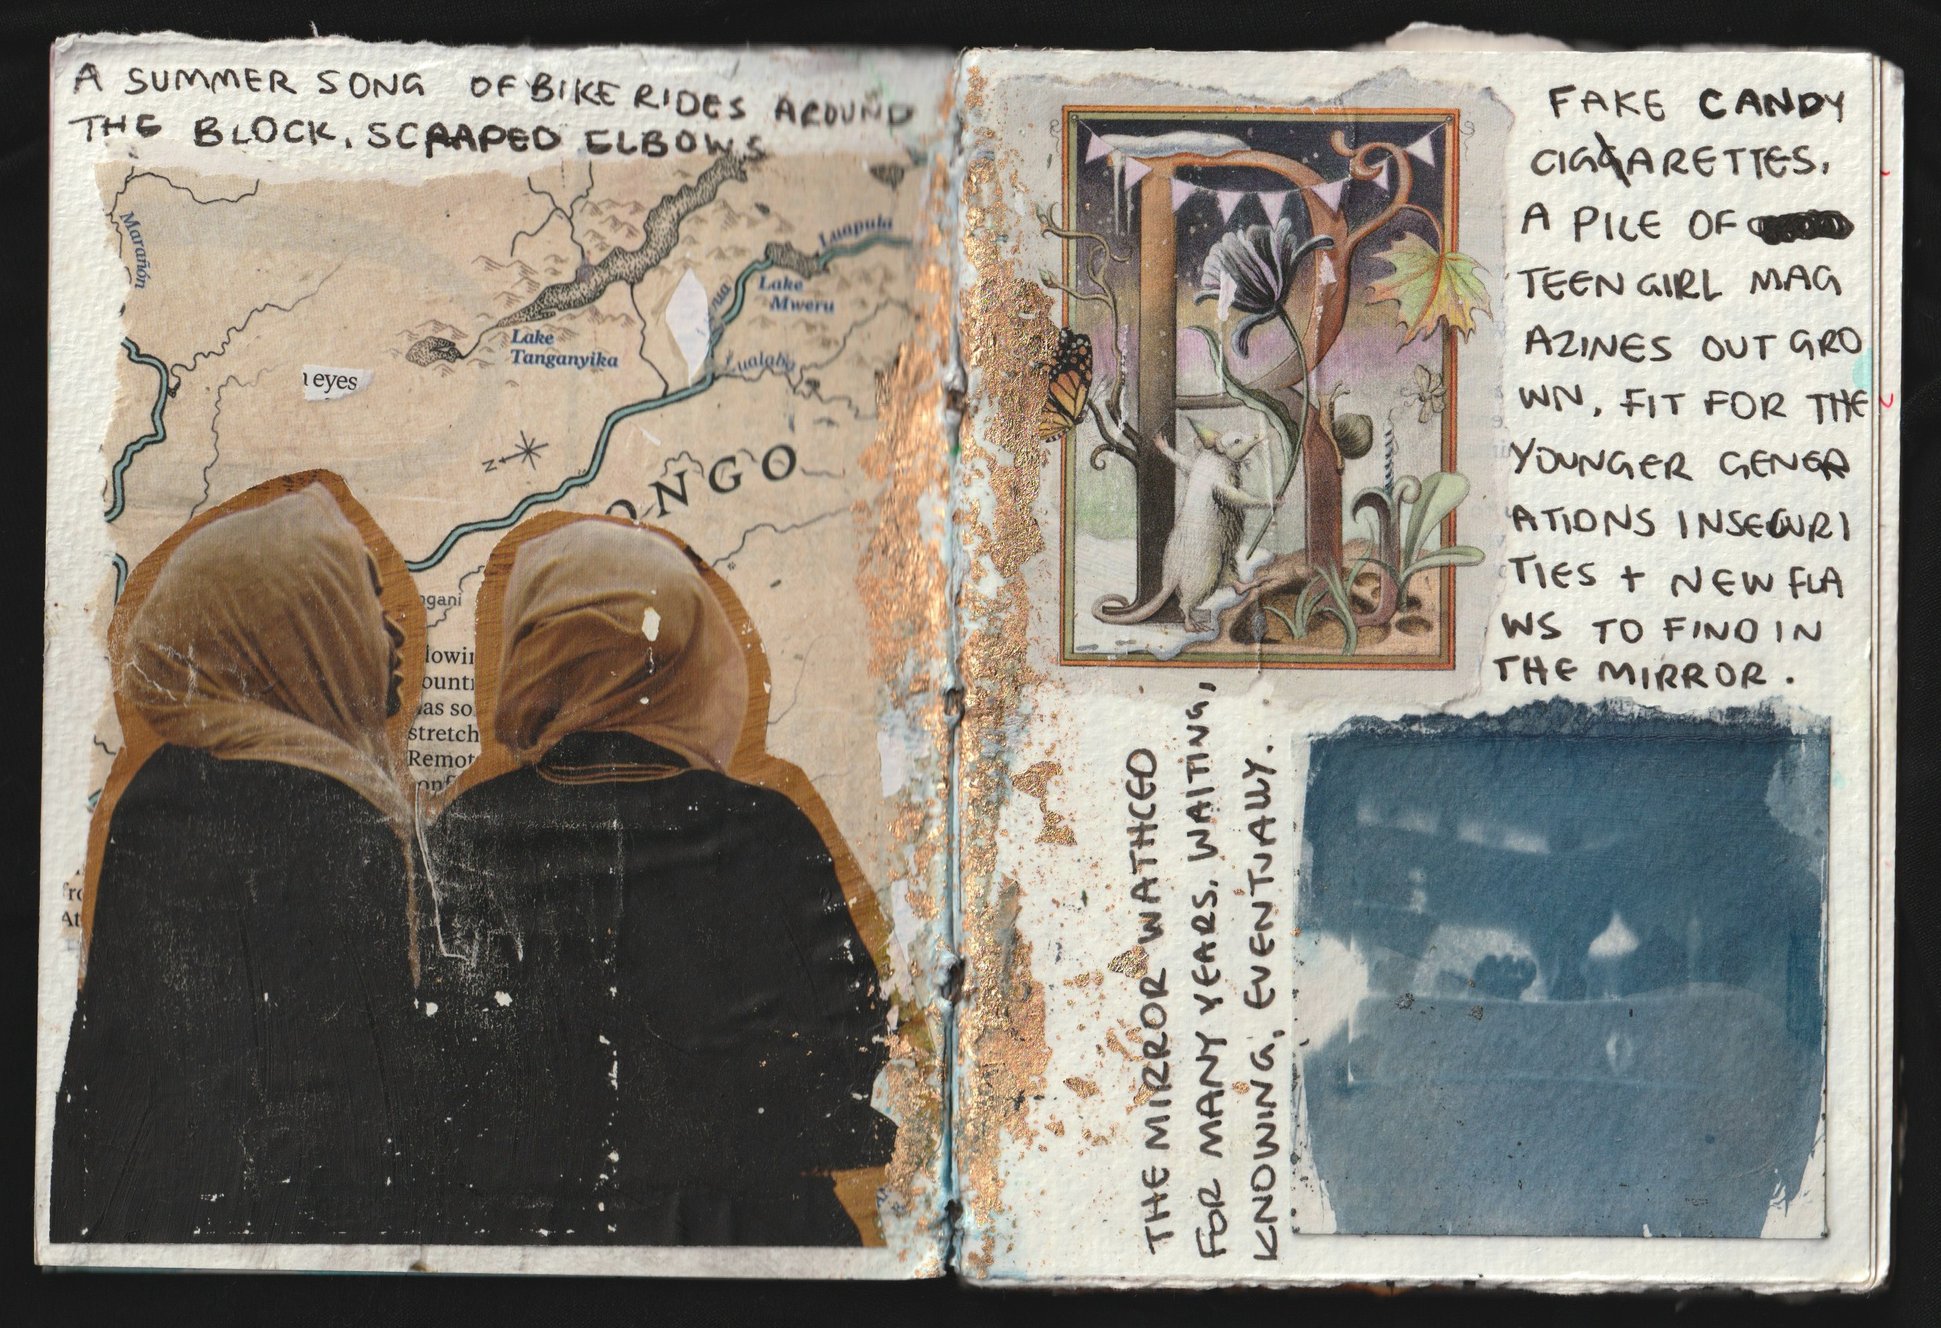 A SUMMER SONG OF BIKE RIDES AROUND
THE BLOCK, SCRAPED ELBOWS
Marañón
Luapula
Lake
Mweru
Lake
Tanganyika
Lualaba
eyes
N
ONGO
ngani
lowin
ountr
as so
stretch
Remot
onf
fro
At
FAKE CANDY
CIGARETTES,
A PILE OF
TEEN GIRL MAG
AZINES OUTGRO
WN, FIT FOR THE
YOUNGER GENER
ATIONS INSECURI
TIES + NEW FLA
WS TO FIND IN
THE MIRROR.
THE MIRROR WATHCED
FOR MANY YEARS. WAITING,
KNOWING, EVENTUALLY.